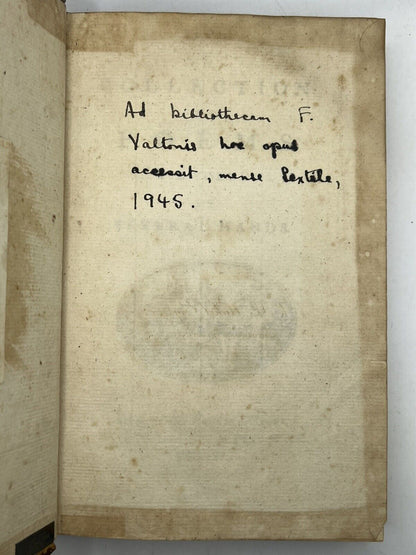 Ad bibliothecam F.
Valtonis hoc opus
accessit, mense Sextile,
1945.